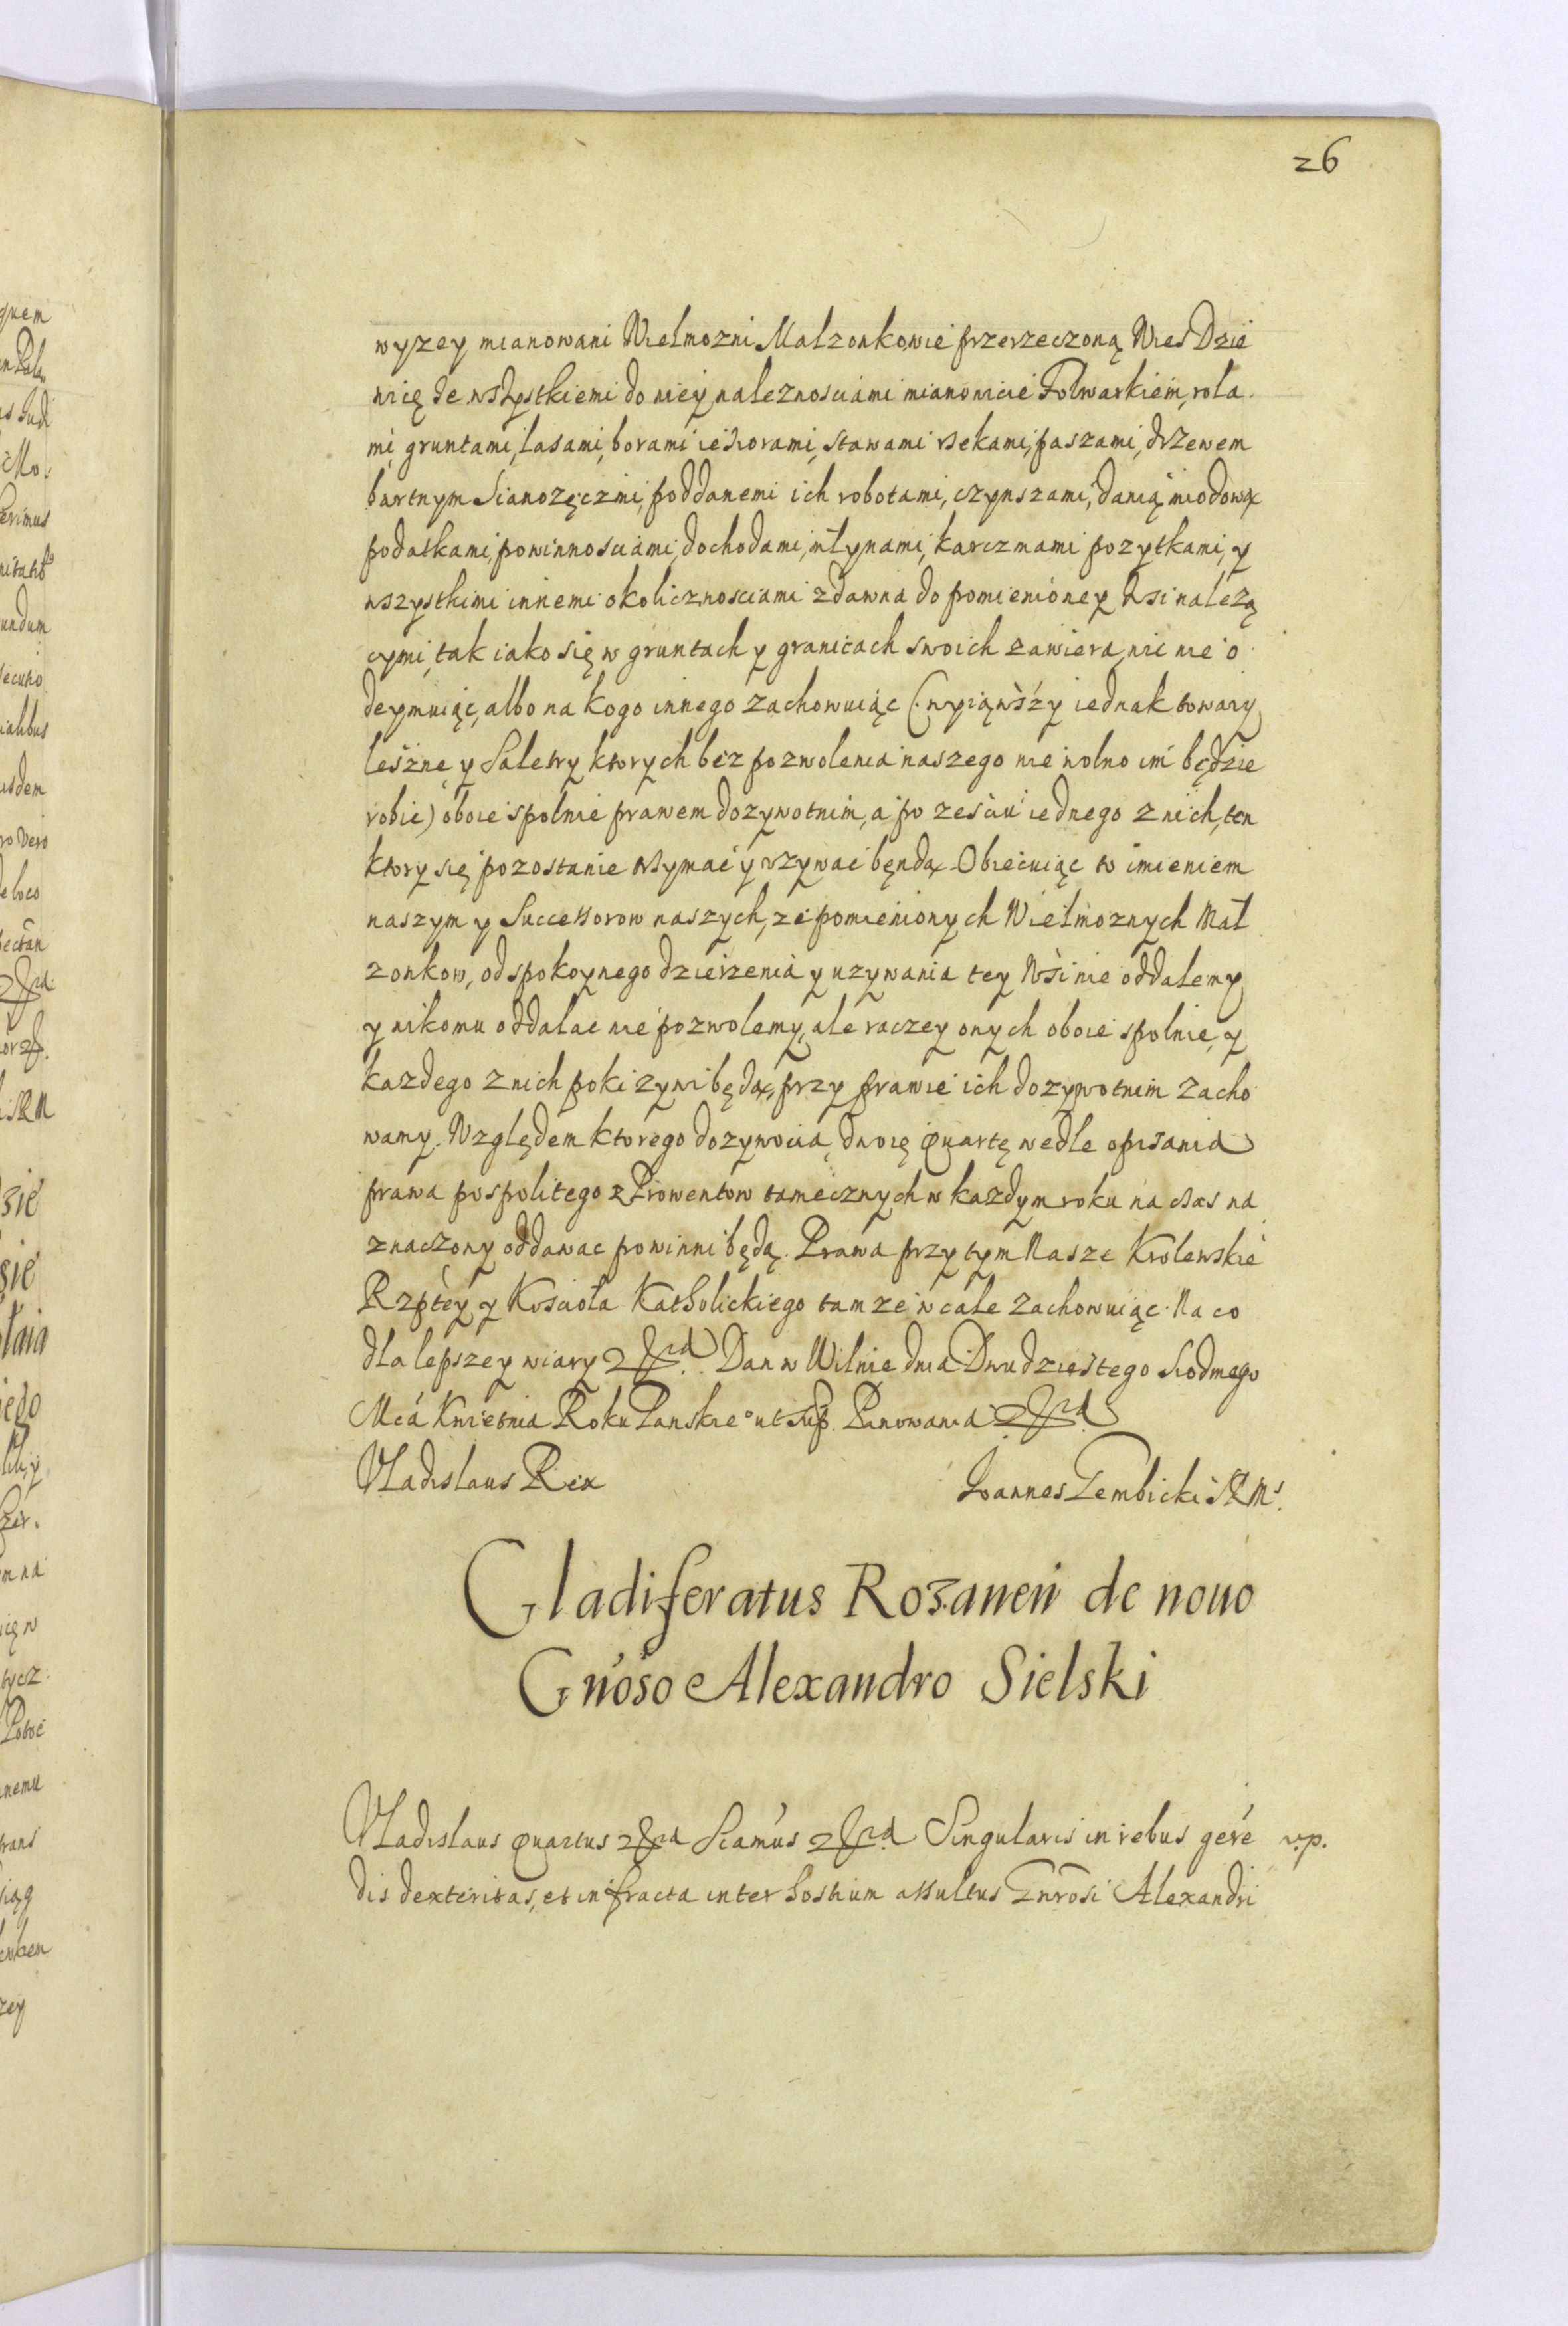 26
wyzey mianowani Wielmozni Malzonkowie przerzeczoną Wies Dzie
nicę ze wszystkiemi do niey naleznosciami mianowicie Folwarkiem, rola
mi, gruntami, lasami, borami ieziorami, stawami rzekami, paszami, drzewem
bartnym Sianozęczmi, poddanemi ich robotami, czynszami, danią miodową
podatkami, powinnosciami, dochodami, młynami, karczmami pozytkami, y
wszystkimi innemi okolicznosciami zdawna do pomienioney Wsi należą
cymi, tak iako się w gruntach y granicach swoich zawiera, nic nie o
deymuiąc, albo na kogo innego zachowuiąc (wyiąwszy iednak towary
leśzne y Saletry ktorych bez pozwolenia naszego nie wolno im będzie
robic) oboie spolnie prawem dozywotnim, a po zesciu iednego z nich, ten
ktory się pozostanie trzymać y vzywać bęndą. Obiecuiąc to imieniem
naszym y Successorow naszych, ze pomienionych Wielmoznych Mał
zonkow, od spokoynego dzierzenia y uzywania tey Wsi nie oddalemy
y nikomu oddalac nie pozwolemy, ale raczey onych oboie spolnie, y
kazdego z nich poki zywi będą, przy prawie ich dozywotnim zacho
wamy. Względem ktorego dozywocia, dwoię quartę wedle opisania
prawa pospolitego z Prowentow tamecznych w kazdym roku na czas na
znaczony oddawac powinni będą. Prawa przy tym Nasze Krolewskie
Rzptey y Kosciola Katholickiego tamze w cale zachowuiąc. Na co
dla lepszey wiary etc. Dan w Wilnie dnia Dwudziestego Siodmego
Mca Kwietnia Roku Panskieo ut sup. Panowania etc.
Vladislaus Rex
Joannes Gembicki S R Ms.
Gladiferatus Rozanen de nouo
Gnoso Alexandro Sielski
Vladislaus Quartus etc. Sciamus etc. Singularis in rebus geré v.p.
dis dexteritas, et infracta inter hostium assultus Gnrosi Alexandri